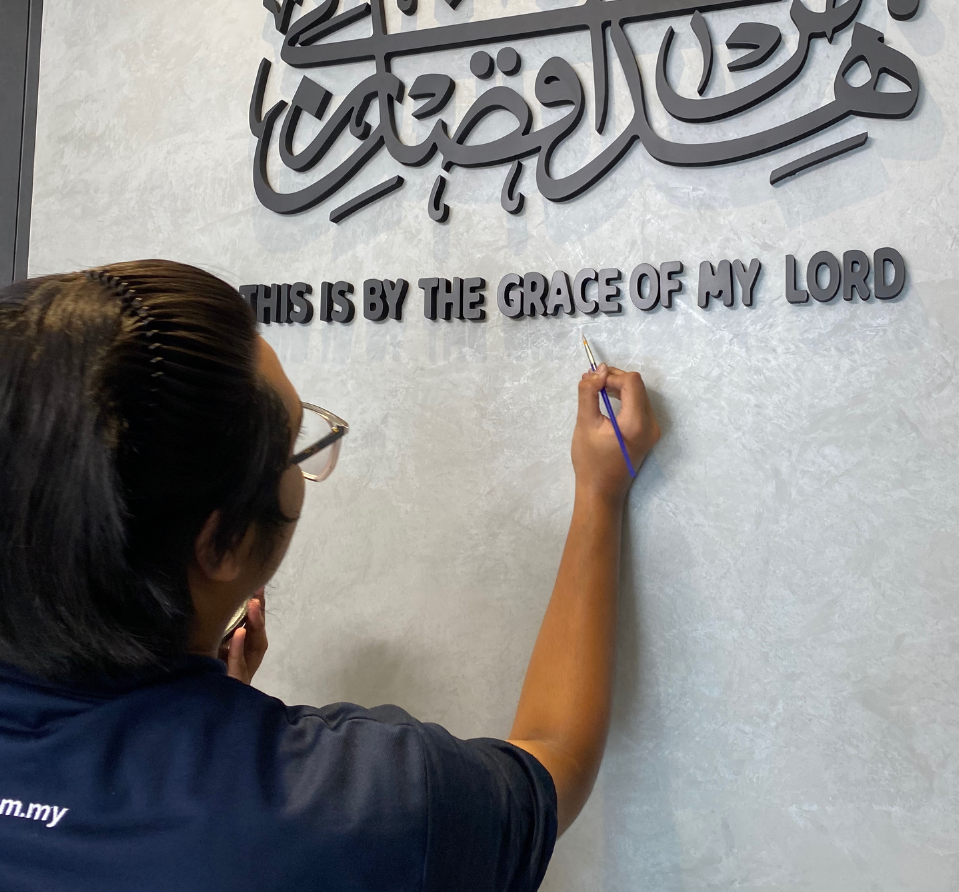 هذا من فضل ربي
THIS IS BY THE GRACE OF MY LORD
m.my